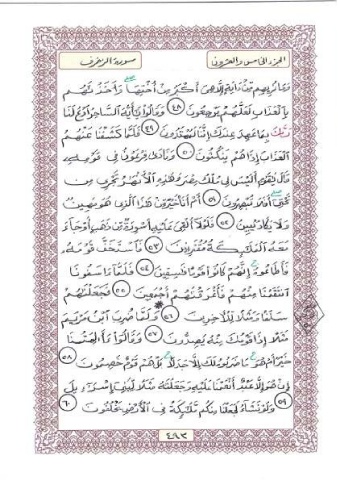 الجزء الخامس والعشرون سورة الزخرف
وَمَا نُرِيهِم مِّنْ ءَايَةٍ إِلَّا هِيَ أَكْبَرُ مِنْ أُخْتِهَا ۖ وَأَخَذْنَٰهُم
بِٱلْعَذَابِ لَعَلَّهُمْ يَرْجِعُونَ ٤٨ وَقَالُوا۟ يَٰٓأَيُّهَ ٱلسَّاحِرُ ٱدْعُ لَنَا
رَبَّكَ بِمَا عَهِدَ عِندَكَ إِنَّنَا لَمُهْتَدُونَ ٤٩ فَلَمَّا كَشَفْنَا عَنْهُمُ
ٱلْعَذَابَ إِذَا هُمْ يَنكُثُونَ ٥٠ وَنَادَىٰ فِرْعَوْنُ فِى قَوْمِهِۦ
قَالَ يَٰقَوْمِ أَلَيْسَ لِى مُلْكُ مِصْرَ وَهَٰذِهِ ٱلْأَنْهَٰرُ تَجْرِى مِن
تَحْتِىٓ ۖ أَفَلَا تُبْصِرُونَ ٥١ أَمْ أَنَا۠ خَيْرٌ مِّنْ هَٰذَا ٱلَّذِى هُوَ مَهِينٌ
وَلَا يَكَادُ يُبِينُ ٥٢ فَلَوْلَآ أُلْقِىَ عَلَيْهِ أَسْوِرَةٌ مِّن ذَهَبٍ أَوْ جَآءَ
مَعَهُ ٱلْمَلَٰٓئِكَةُ مُقْتَرِنِينَ ٥٣ فَٱسْتَخَفَّ قَوْمَهُۥ
فَأَطَاعُوهُ ۚ إِنَّهُمْ كَانُوا۟ قَوْمًا فَٰسِقِينَ ٥٤ فَلَمَّآ ءَاسَفُونَا
ٱنتَقَمْنَا مِنْهُمْ فَأَغْرَقْنَٰهُمْ أَجْمَعِينَ ٥٥ فَجَعَلْنَٰهُمْ
سَلَفًا وَمَثَلًا لِّلْءَاخِرِينَ ٥٦ وَلَمَّا ضُرِبَ ٱبْنُ مَرْيَمَ
مَثَلًا إِذَا قَوْمُكَ مِنْهُ يَصِدُّونَ ٥٧ وَقَالُوٓا۟ ءَأَٰلِهَتُنَا
خَيْرٌ أَمْ هُوَ ۚ مَا ضَرَبُوهُ لَكَ إِلَّا جَدَلًۢا ۚ بَلْ هُمْ قَوْمٌ خَصِمُونَ ٥٨
إِنْ هُوَ إِلَّا عَبْدٌ أَنْعَمْنَا عَلَيْهِ وَجَعَلْنَٰهُ مَثَلًا لِّبَنِىٓ إِسْرَٰٓءِيلَ ٥٩
وَلَوْ نَشَآءُ لَجَعَلْنَا مِنكُم مَّلَٰٓئِكَةً فِى ٱلْأَرْضِ يَخْلُفُونَ ٦٠
٤٩٣